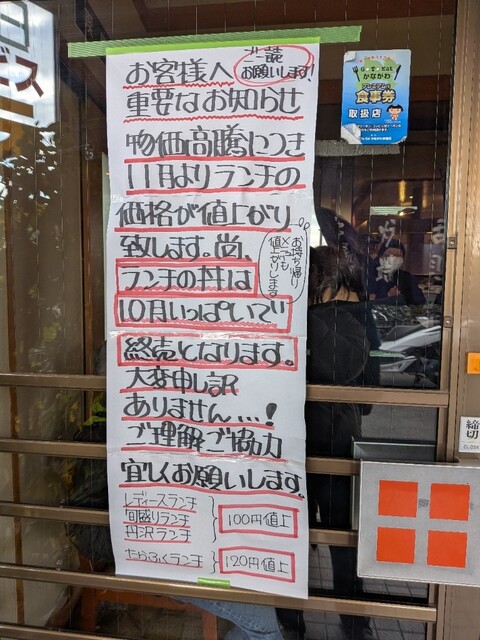 お客様へ
ご一読
お願いします!
重要なお知らせ
物価高騰につき
11月よりランチの
価格が値上がり
致します。尚、
お持ち帰り
メニューも
値上がりします
ランチの丼は
10月いっぱいで
終売となります。
大変申し訳
ありません…!
ご理解ご協力
宜しくお願いします。
レディースランチ
旬盛りランチ
丹沢ランチ
100円値上
たらふくランチ
120円値上
Go To Eat
かながわ
プレミアム付
食事券
取扱店
締切